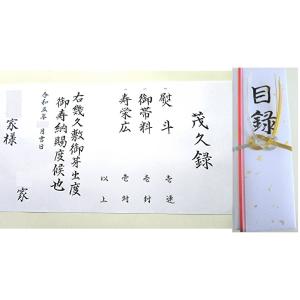 茂久録
熨斗 壱連
御帯料 壱封
寿栄広 壱対
以上
右幾久敷御芽出度
御寿納賜度候也
令和五年 月吉日
家
家様
目録